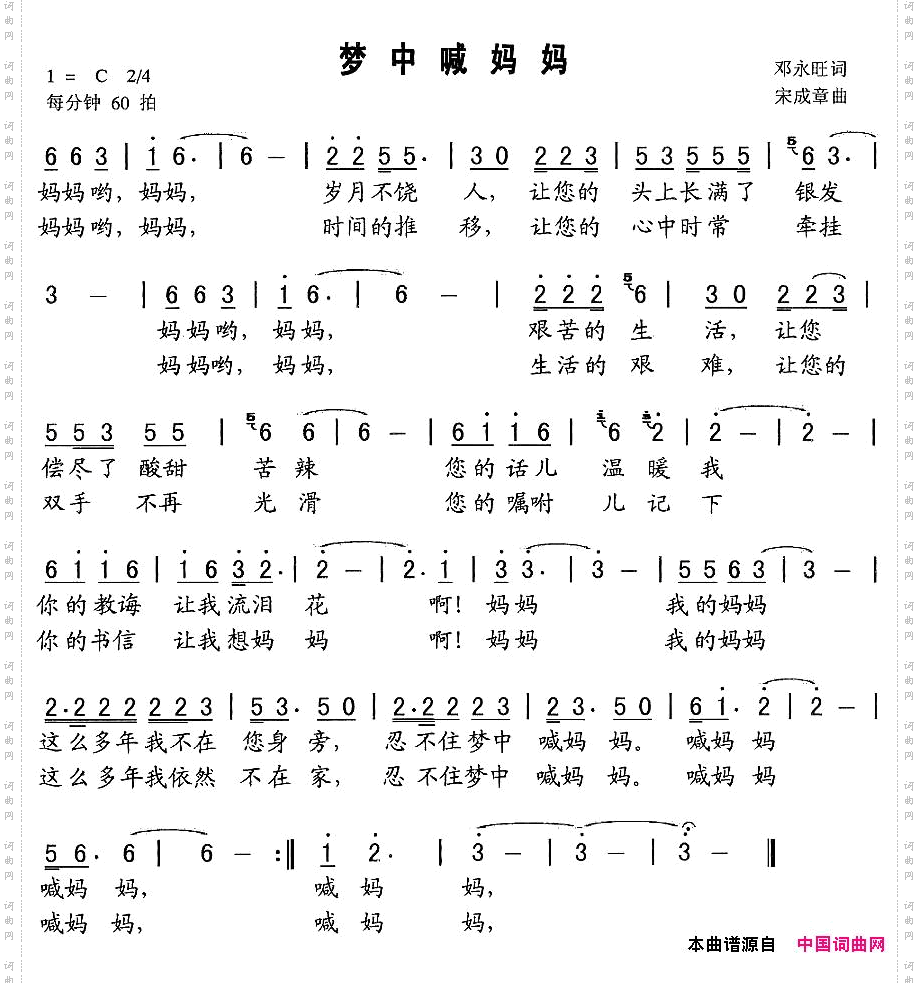 梦中喊妈妈
1 = C 2/4
邓永旺词
每分钟 60 拍
宋成章曲
6 6 3 | 1 6. | 6 – | 2 2 5 5. | 3 0 2 2 3 | 5 3 5 5 5 | 5 6 3. |
妈妈哟，妈妈， 岁月不饶 人，让您的 头上长满了 银发
妈妈哟，妈妈， 时间的推 移，让您的 心中时常 牵挂
3 – | 6 6 3 | 1 6. | 6 – | 2 2 2 5 6 | 3 0 2 2 3 |
妈妈哟，妈妈， 艰苦的 生 活，让您
妈妈哟，妈妈， 生活的 艰 难，让您的
5 5 3 5 5 | 5 6 6 | 6 – | 6 1 1 6 | 1 6 3 2 | 2 – | 2 – |
偿尽了 酸甜 苦 辣 您的话儿 温 暖 我
双手 不再 光 滑 您的嘱咐 儿 记 下
6 1 1 6 | 1 6 3 2. | 2 – | 2. 1 | 3 3. | 3 – | 5 5 6 3 | 3 – |
你的教诲 让我流泪 花 啊！妈妈 我的妈妈
你的书信 让我想妈 妈 啊！妈妈 我的妈妈
2. 2 2 2 2 2 3 | 5 3. 5 0 | 2. 2 2 2 2 3 | 2 3. 5 0 | 6 1. 2 | 2 – |
这么多年我不在 您身 旁， 忍不住梦中 喊妈 妈。 喊妈 妈
这么多年我依然 不在 家， 忍不住梦中 喊妈 妈。 喊妈 妈
5 6. 6 | 6 – :‖ 1 2. | 3 – | 3 – | 3 – ‖
喊妈 妈， 喊妈 妈，
喊妈 妈， 喊妈 妈，
本曲谱源自 中国词曲网